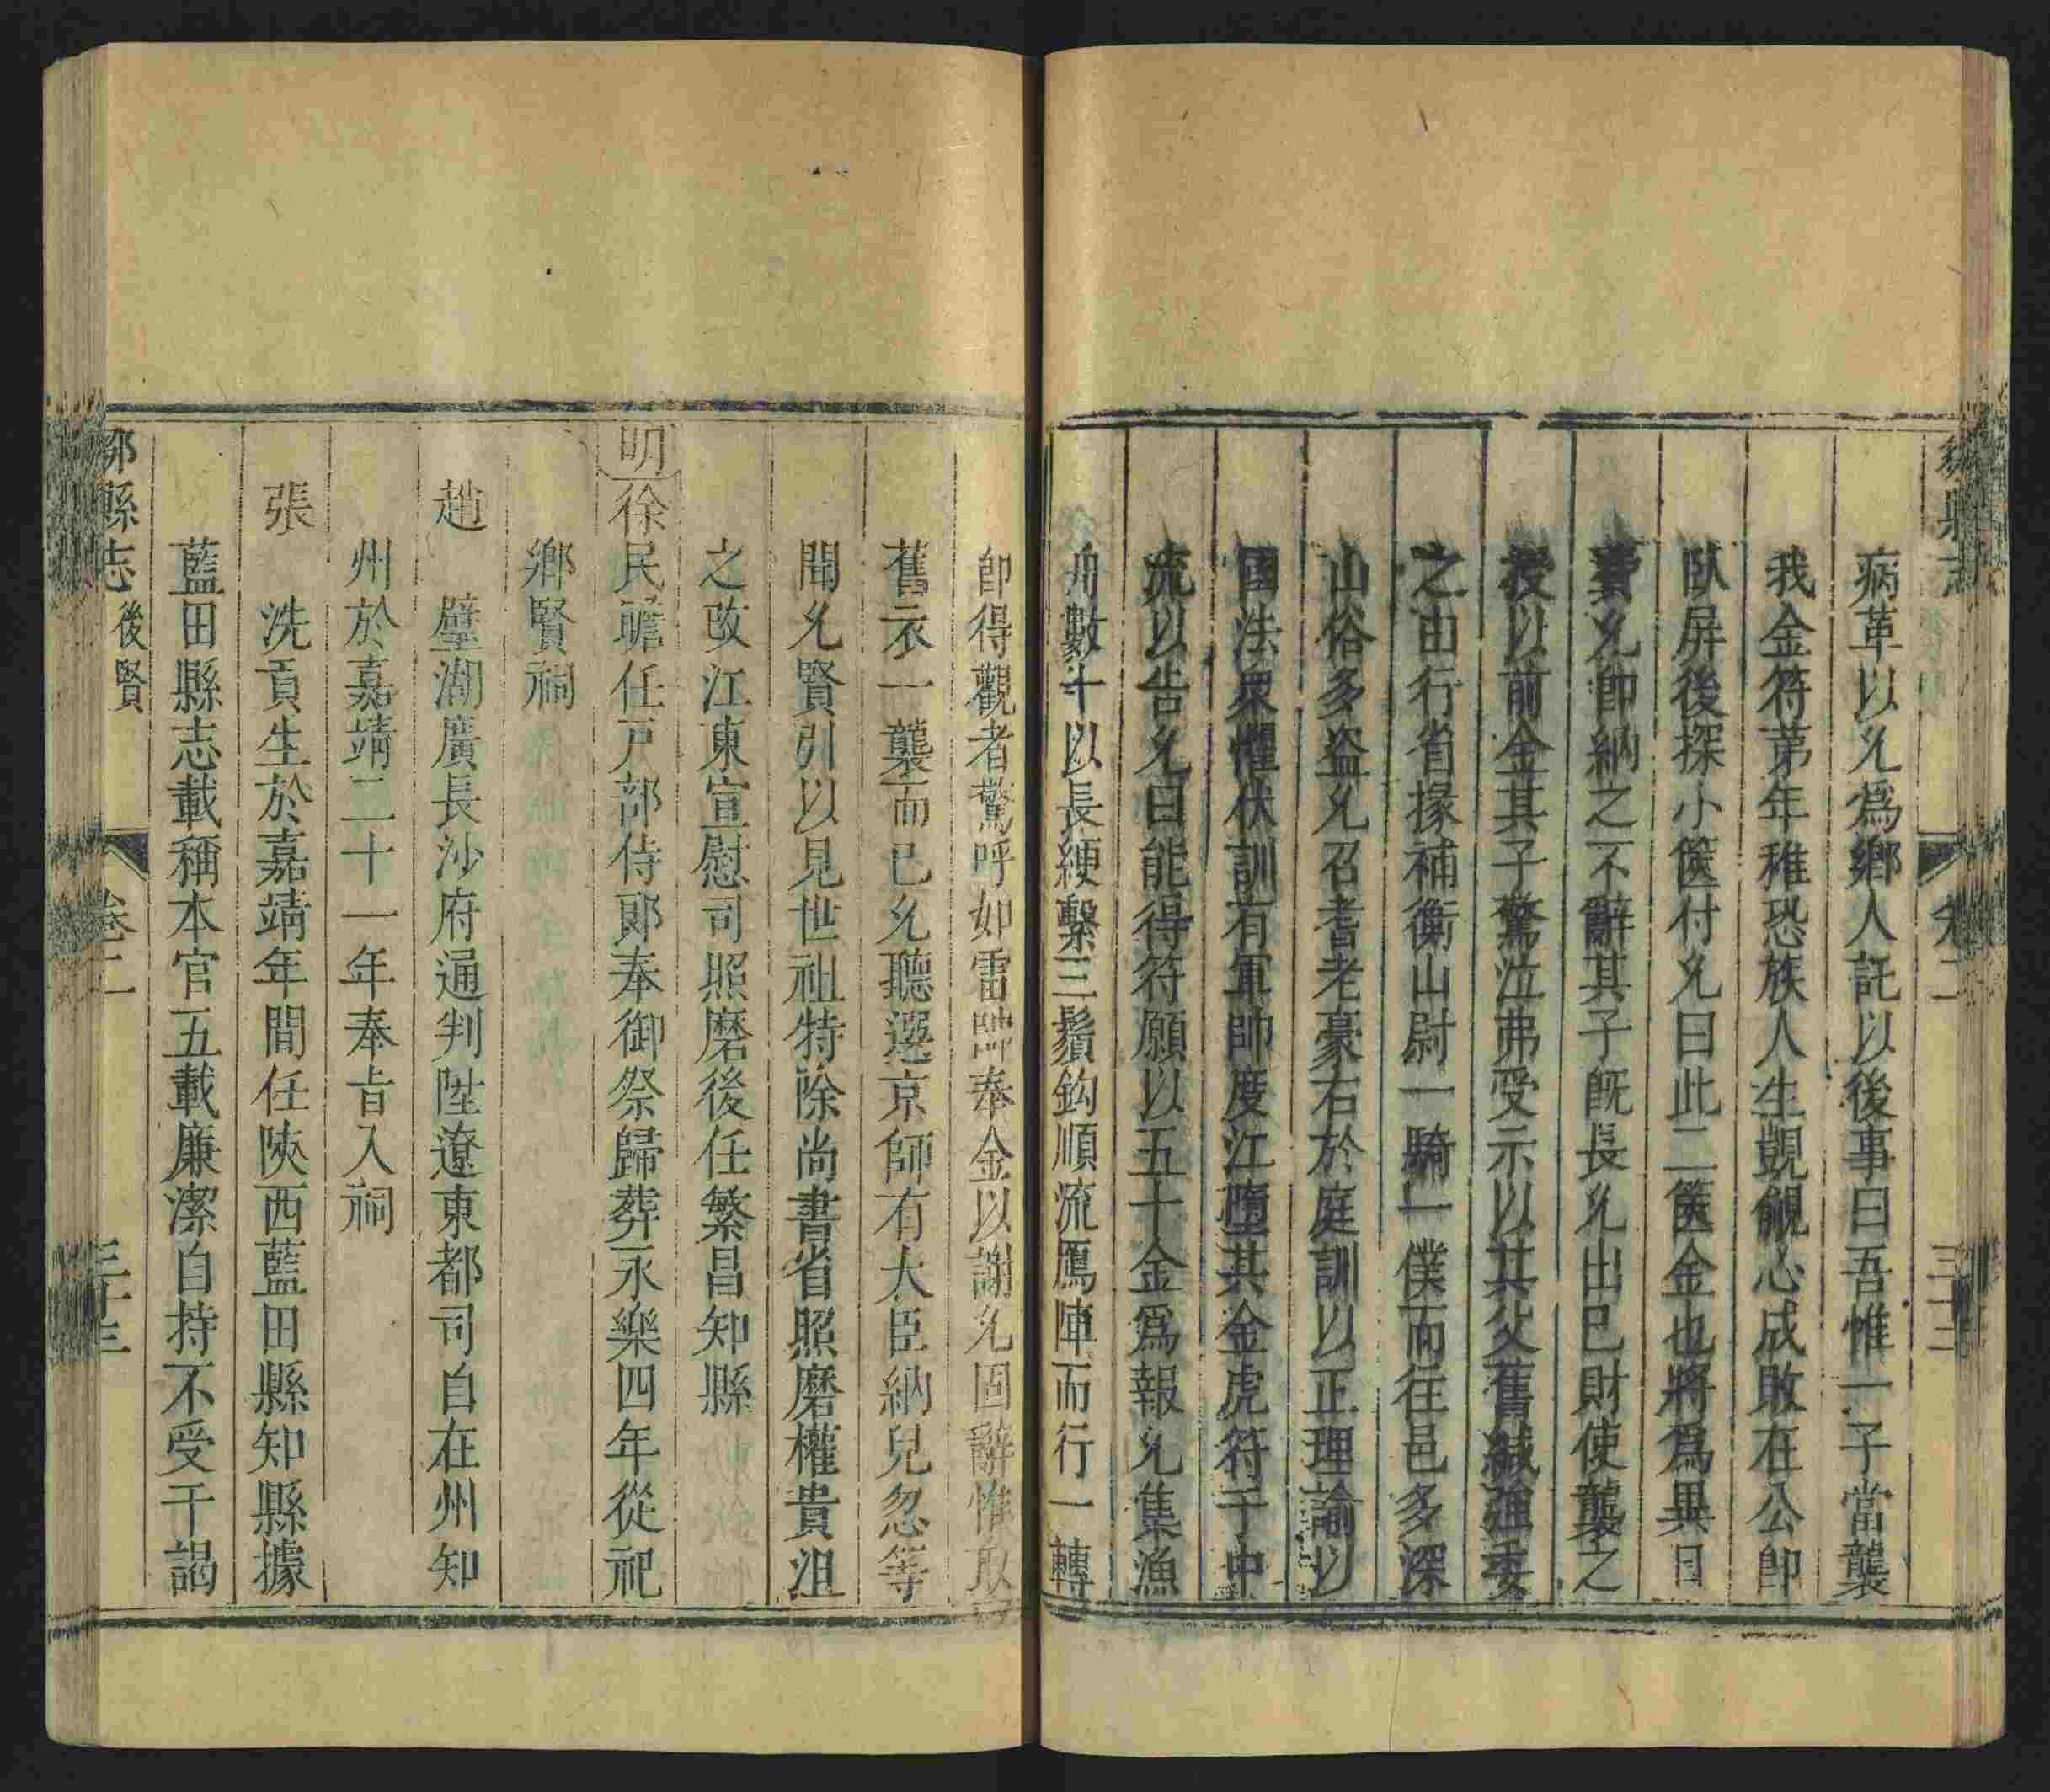 病革以允爲鄉人託以後事曰吾惟一子當襲
我金符苐年稚恐族人生覬覦心成敗在公卽
臥屏後探小篋付允曰此二篋金也將爲異日
費允卽納之不辭其子旣長允出已財使襲之
授以前金其子驚泣弗受示以其父舊緘強委
之由行省掾補衡山尉一騎一僕而往邑多深
山俗多盜允召耆老豪右於庭訓以正理諭以
國法衆懼伏訓有軍帥度江墮其金虎符于中
流以告允曰能得符願以五十金爲報允集漁
舟數十以長綆繫三鬚鈎順流鴈陣而行一轉
卽得觀者驚呼如雷帥奉金以謝允固辭惟取
舊衣一襲而已允聽選京師有大臣納兒忽等
聞允賢引以見世祖特除尚書省照磨權貴沮
之改江東宣慰司照磨後任繁昌知縣
明 徐民瞻任戸部侍郞奉御祭歸葬永樂四年從祀
鄉賢祠
趙 璧湖廣長沙府通判陞遼東都司自在州知
州於嘉靖二十一年奉旨入祠
張 洗貢生於嘉靖年間任陝西藍田縣知縣據
藍田縣志載稱本官五載廉潔自持不受干謁
鄒縣志 後賢 卷二 三十三